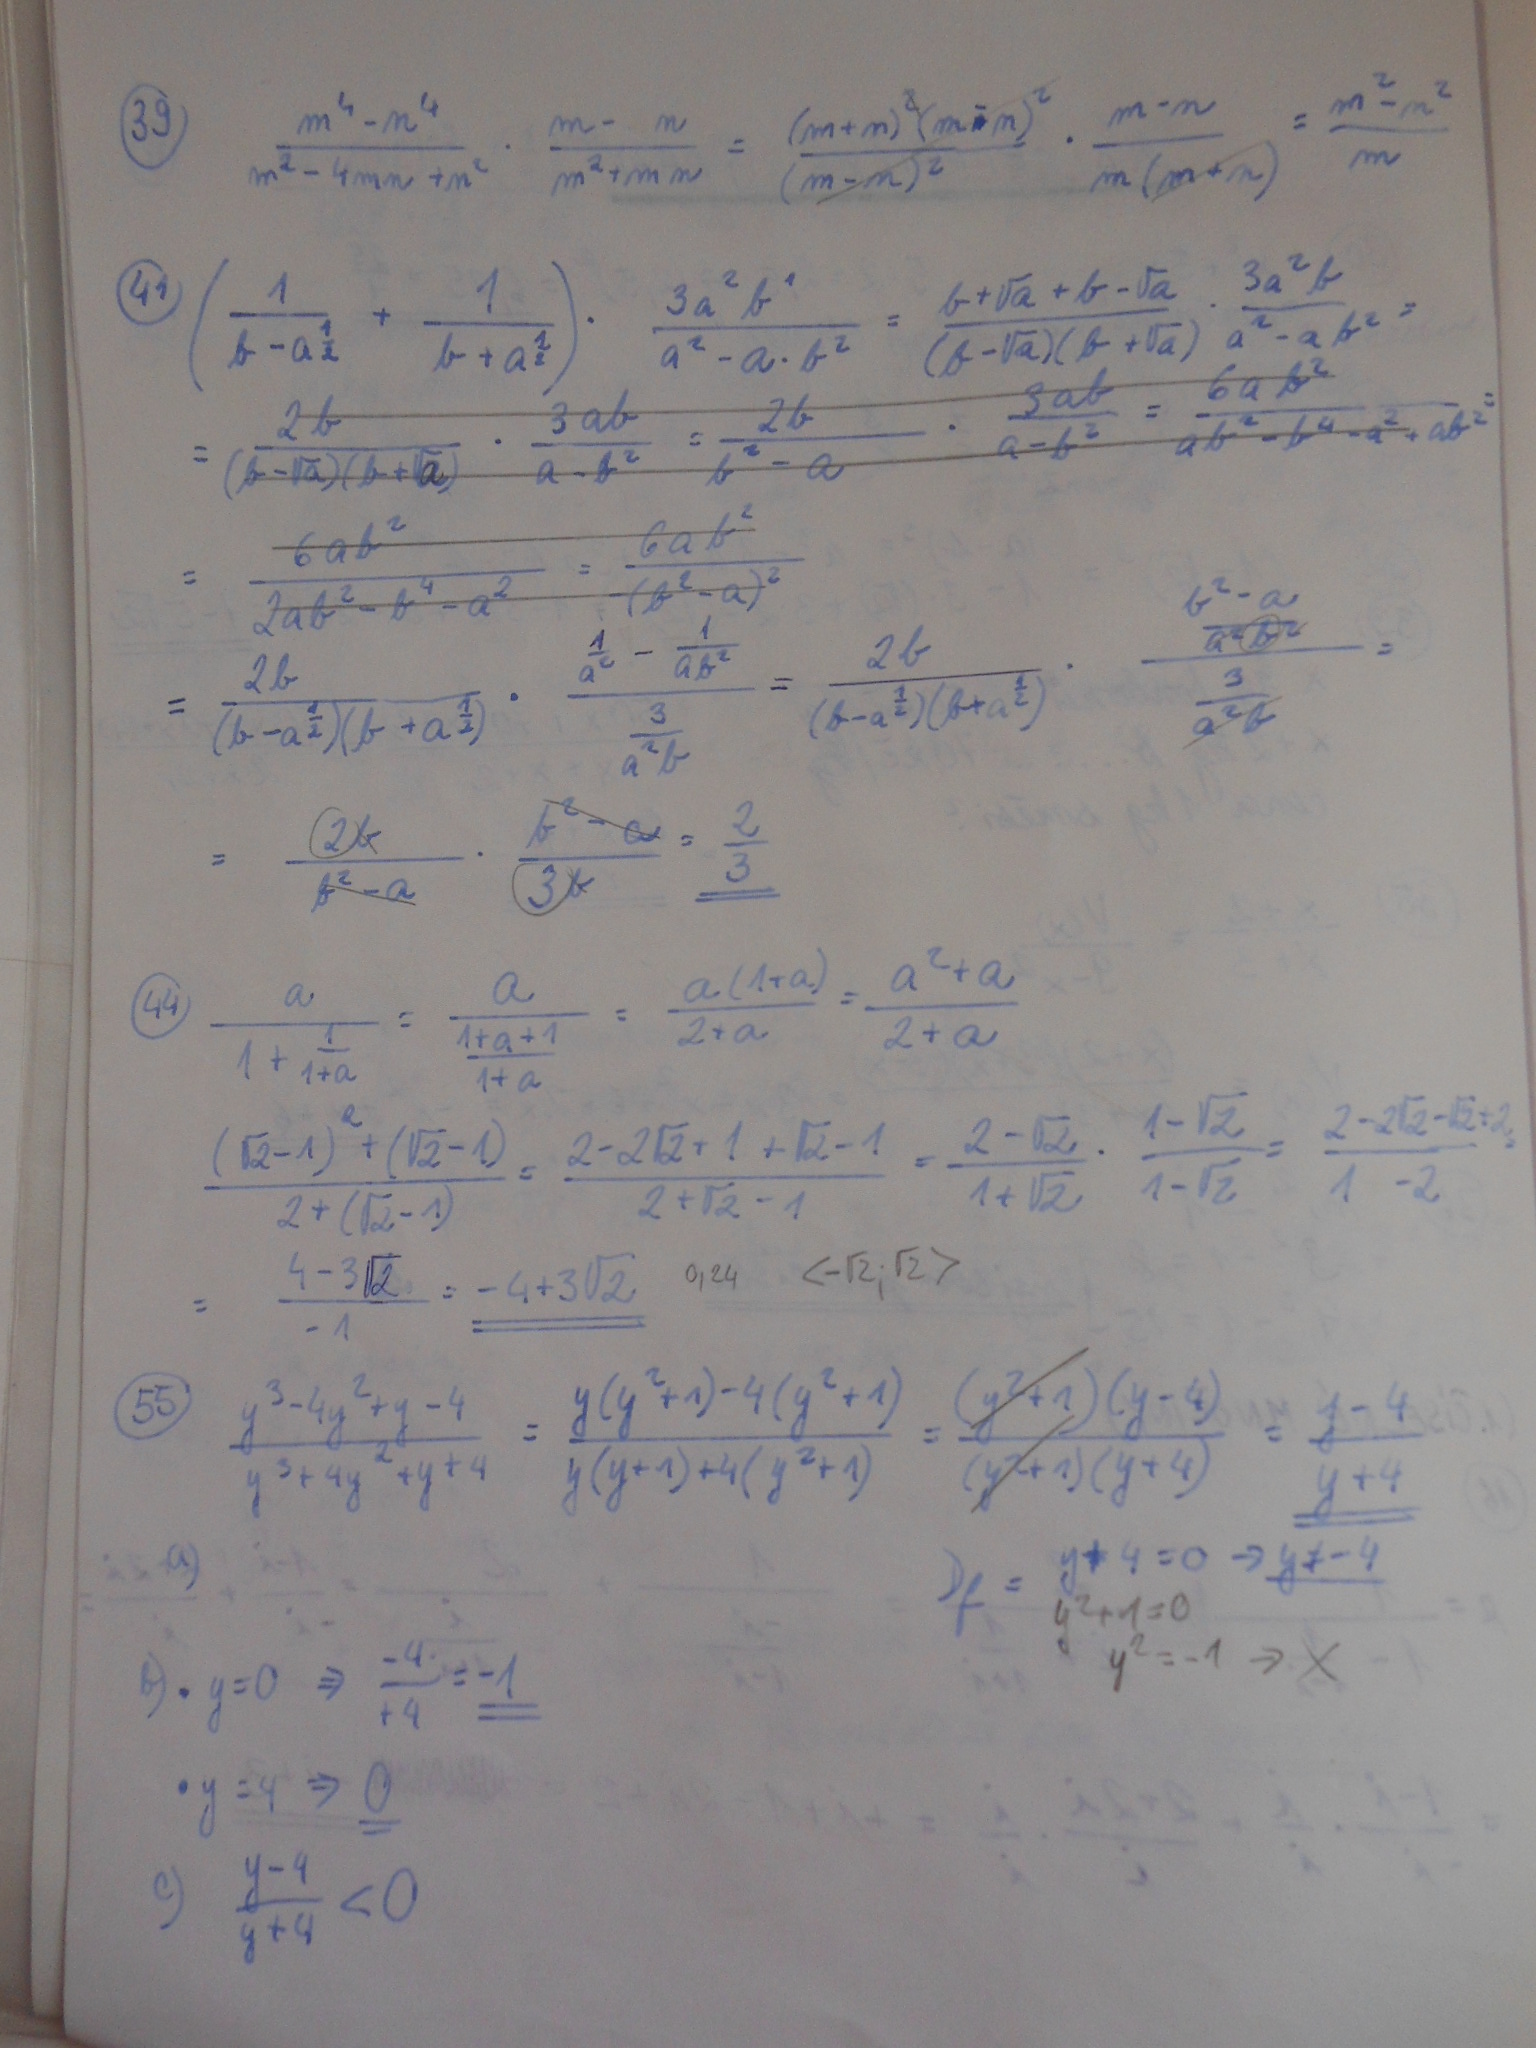 39 (m⁴-n⁴)/(m²-4mn+n²) · (m-n)/(m²+mn) = (m+n)²(m-n)²/(m-n)² · (m-n)/(m(m+n)) = (m²-n²)/m
41 (1/(b-a^(1/2)) + 1/(b+a^(1/2))) · 3a²b¹/(a²-a·b²) = (b+√a+b-√a)/((b-√a)(b+√a)) · 3a²b/(a²-ab²) =
= 2b/((b-√a)(b+√a)) · 3ab/(a-b²) = 2b/(b²-a) · 3ab/(a-b²) = 6ab²/(ab²-b⁴-a²+ab²) =
= 6ab²/(2ab²-b⁴-a²) = 6ab²/(b²-a)²
= 2b/((b-a^(1/2))(b+a^(1/2))) · (1/a² - 1/(ab²))/(3/(a²b)) = 2b/((b-a^(1/2))(b+a^(1/2))) · ((b²-a)/(a²b²))/(3/(a²b)) =
= 2b/(b²-a) · (b²-a)/(3b) = 2/3
44 a/(1+1/(1+a)) = a/((1+a+1)/(1+a)) = a(1+a)/(2+a) = (a²+a)/(2+a)
((√2-1)²+(√2-1))/(2+(√2-1)) = (2-2√2+1+√2-1)/(2+√2-1) = (2-√2)/(1+√2) · (1-√2)/(1-√2) = (2-2√2-√2+2)/(1-2) =
= (4-3√2)/(-1) = -4+3√2 0,24 <-√2;√2>
55 (y³-4y²+y-4)/(y³+4y²+y+4) = (y(y²+1)-4(y²+1))/(y(y+1)+4(y²+1)) = (y²+1)(y-4)/((y²+1)(y+4)) = (y-4)/(y+4)
a) Df = y+4=0 → y≠-4
y²+1=0
y²=-1 → X
b) • y=0 ⇒ -4/+4 = -1
• y=4 ⇒ 0
c) (y-4)/(y+4) < 0